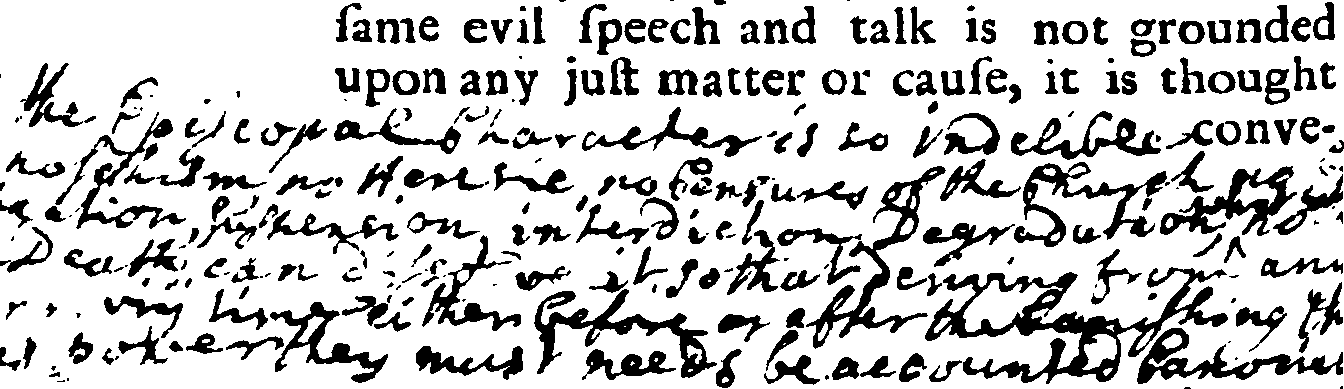 ſame evil ſpeech and talk is not grounded
upon any juſt matter or cauſe, it is thought
the Episcopal Character is so indelible conve-
no schism no Heresie, no Censures of the Church
Suspension, interdiction, Degradation, no
Death can dissolve it, so that deriving from any
time either before or after the banishing
power they must needs be accounted